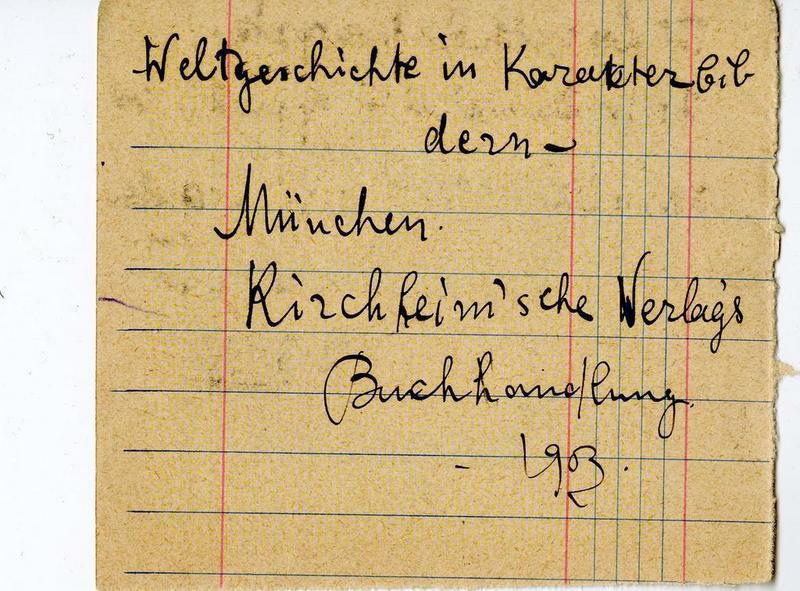 Weltgeschichte in Karakterbib
dern-
München.
Kirchheim'sche Verlags
Buchhandlung.
- 1903.